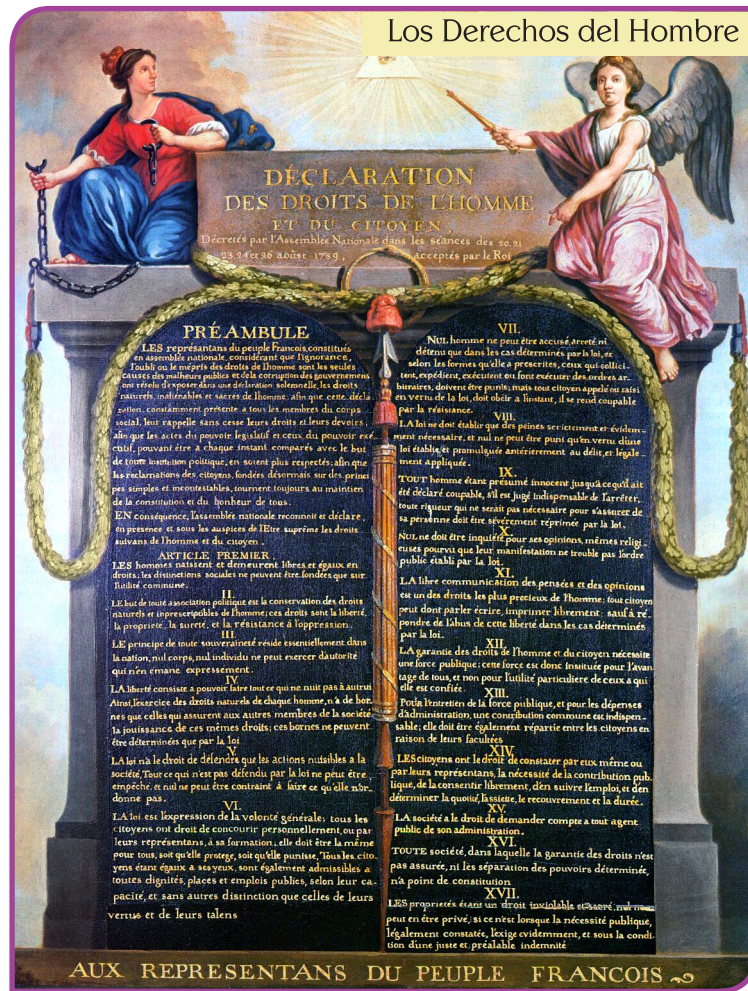 Los Derechos del Hombre
DÉCLARATION
DES DROITS DE L'HOMME
ET DU CITOYEN,
Décretés par l'Assemblée Nationale dans les séances des 20, 21
23, 24 et 26 aoûst 1789, acceptés par le Roi
PRÉAMBULE
LES représantans du peuple François, constitués
en assemblée nationale, considérant que l'ignorance,
l'oubli ou le mépris des droits de l'homme sont les seules
causes des malheurs publics et de la corruption des gouvernemens
ont résolu d'exposer dans une déclaration solemnelle, les droits
naturels, inaliénables et sacrés de l'homme; afin que cette décla
ration, constamment présente a tous les membres du corps
social, leur rappelle sans cesse leurs droits et leurs devoirs;
afin que les actes du pouvoir legislatif et ceux du pouvoir exé
cutif, pouvant être a chaque instant comparés avec le but
de toute institution politique, en soient plus respectés; afin que
les reclamations des citoyens, fondées désormais sur des princi
pes simples et incontestables, tournent toujours au maintien
de la constitution et du bonheur de tous.
EN conséquence, l'assemblée nationale reconnoit et déclare,
en presence et sous les auspices de l'Etre suprême les droits
suivans de l'homme et du citoyen.
ARTICLE PREMIER.
LES hommes naissent et demeurent libres et égaux en
droits; les distinctions sociales ne peuvent être fondées que sur
l'utilité commune.
II.
LE but de toute association politique est la conservation des droits
naturels et inprescriptibles de l'homme; ces droits sont la liberté,
la propriété, la sureté, et la résistance à l'oppression.
III.
LE principe de toute souveraineté réside essentiellement dans
la nation, nul corps, nul individu ne peut exercer d'autorité
qui n'en émane expressément.
IV.
LA liberté consiste a pouvoir faire tout ce qui ne nuit pas à autrui
Ainsi, l'exercice des droits naturels de chaque homme, n'a de bor
nes que celles qui assurent aux autres membres de la société
la jouissance de ces mêmes droits; ces bornes ne peuvent
être déterminées que par la loi
V.
LA loi n'a le droit de défendre que les actions nuisibles a la
société. Tout ce qui n'est pas défendu par la loi ne peut être
empêché, et nul ne peut être contraint à faire ce qu'elle n'or-
donne pas.
VI.
LA loi est l'expression de la volonté générale; tous les
citoyens ont droit de concourir personnellement, ou par
leurs représentans, à sa formation; elle doit être la même
pour tous, soit qu'elle protege, soit qu'elle punisse. Tous les cito
yens étant égaux a ses yeux, sont également admissibles a
toutes dignités, places et emplois publics, selon leur ca-
pacité, et sans autres distinction que celles de leurs
vertus et de leurs talens
VII.
NUL homme ne peut être accusé, arreté ni
détenu que dans les cas déterminés par la loi, et
selon les formes qu'elle a prescrites, ceux qui sollici-
tent, expédient, exécutent ou font exécuter des ordres ar-
bitraires, doivent être punis; mais tout citoyen appelé ou saisi
en vertu de la loi, doit obéir a l'instant, il se rend coupable
par la résistance.
VIII.
LA loi ne doit établir que des peines strictement et évidem-
ment nécessaire, et nul ne peut être puni qu'en vertu d'une
loi établie et promulguée antérierement au délit, et légale-
ment appliquée.
IX.
TOUT homme étant présumé innocent jusqu'a ce qu'il ait
été déclaré coupable, s'il est jugé indispensable de l'arrêter,
toute rigueur qui ne serait pas nécessaire pour s'assurer de
sa personne doit être sévèrement réprimée par la loi.
X.
NUL ne doit être inquiété pour ses opinions, mêmes religi-
euses pourvu que leur manifestation ne trouble pas l'ordre
public établi par la loi.
XI.
LA libre communication des pensées et des opinions
est un des droits les plus precieux de l'homme; tout citoyen
peut dont parler écrire, imprimer librement; sauf à ré-
pondre de l'abus de cette liberté dans les cas déterminés
par la loi.
XII.
LA garantie des droits de l'homme et du citoyen nécessite
une force publique; cette force est donc instituée pour l'avan-
tage de tous, et non pour l'utilité particuliere de ceux a qui
elle est confiée.
XIII.
Pour l'entretien de la force publique, et pour les dépenses
d'administration, une contribution commune est indispen-
sable; elle doit être également répartie entre les citoyens en
raison de leurs facultées
XIV.
LES citoyens ont le droit de constater par eux même ou
par leurs représentans, la nécessité de la contribution pub-
lique, de la consentir librement, d'en suivre l'emploi, et d'en
déterminer la quotité, l'assiette, le recouvrement et la durée.
XV.
LA société a le droit de demander compte a tout agent
public de son administration.
XVI.
TOUTE société, dans laquelle la garantie des droits n'est
pas assurée, ni les séparation des pouvoirs déterminée,
n'a point de constitution
XVII.
LES proprietés étant un droit inviolable et sacré, nul ne
peut en être privé, si ce n'est lorsque la nécessité publique,
légalement constatée, l'exige evidemment, et sous la condi-
tion d'une juste et préalable indemnité
AUX REPRESENTANS DU PEUPLE FRANCOIS